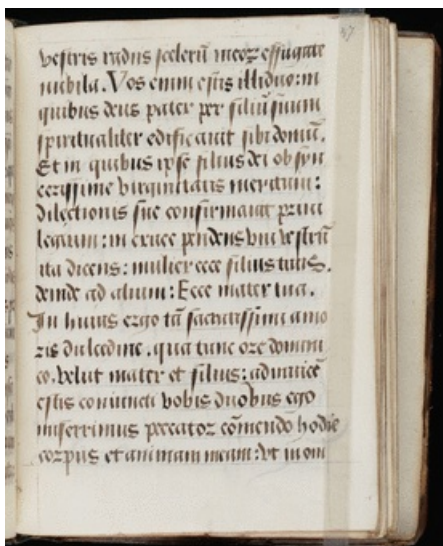 37
vestris radiis scelerū meoꝝ effugate
nubila. Vos enim estis illi duo: in
quibus deus pater per filiū suum
spiritualiter edificauit sibi domū.
Et in quibus ipse filius dei ob syn
cerissime virginitatis meritum:
dilectionis sue confirmauit priui
legium: in cruce pendens vni vestrū
ita dicens: mulier ecce filius tuus.
deinde ad alium: Ecce mater tua.
In huius ergo tā sacratissimi amo
ris dulcedine. qua tunc ore domini
co. velut mater et filius: ad inuicē
estis coniuncti vobis duobus ego
miserrimus peccator cōmendo hodie
corpus et animam meam: vt in om